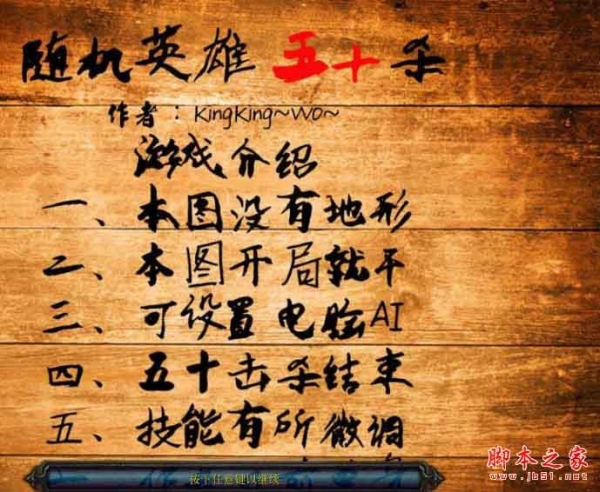 随机英雄 五十杀
作者：KingKing~Wo~
游戏介绍
一、本图没有地形
二、本图开局就干
三、可设置电脑AI
四、五十击杀结束
五、技能有所微调
按下任意键以继续
脚本之家
www.jb51.net